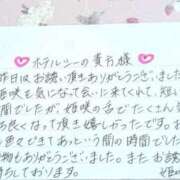 ホテルシーの貴方様
昨日はお誘い頂きありがとうございました
姫咲も会いに来てくれて、短い
間でしたが、姫咲の舌でたくさん
良くなって頂き嬉しかったです。お
色々できてあっという間の時間でした
物もありがとうございました。またお誘
ちしております。